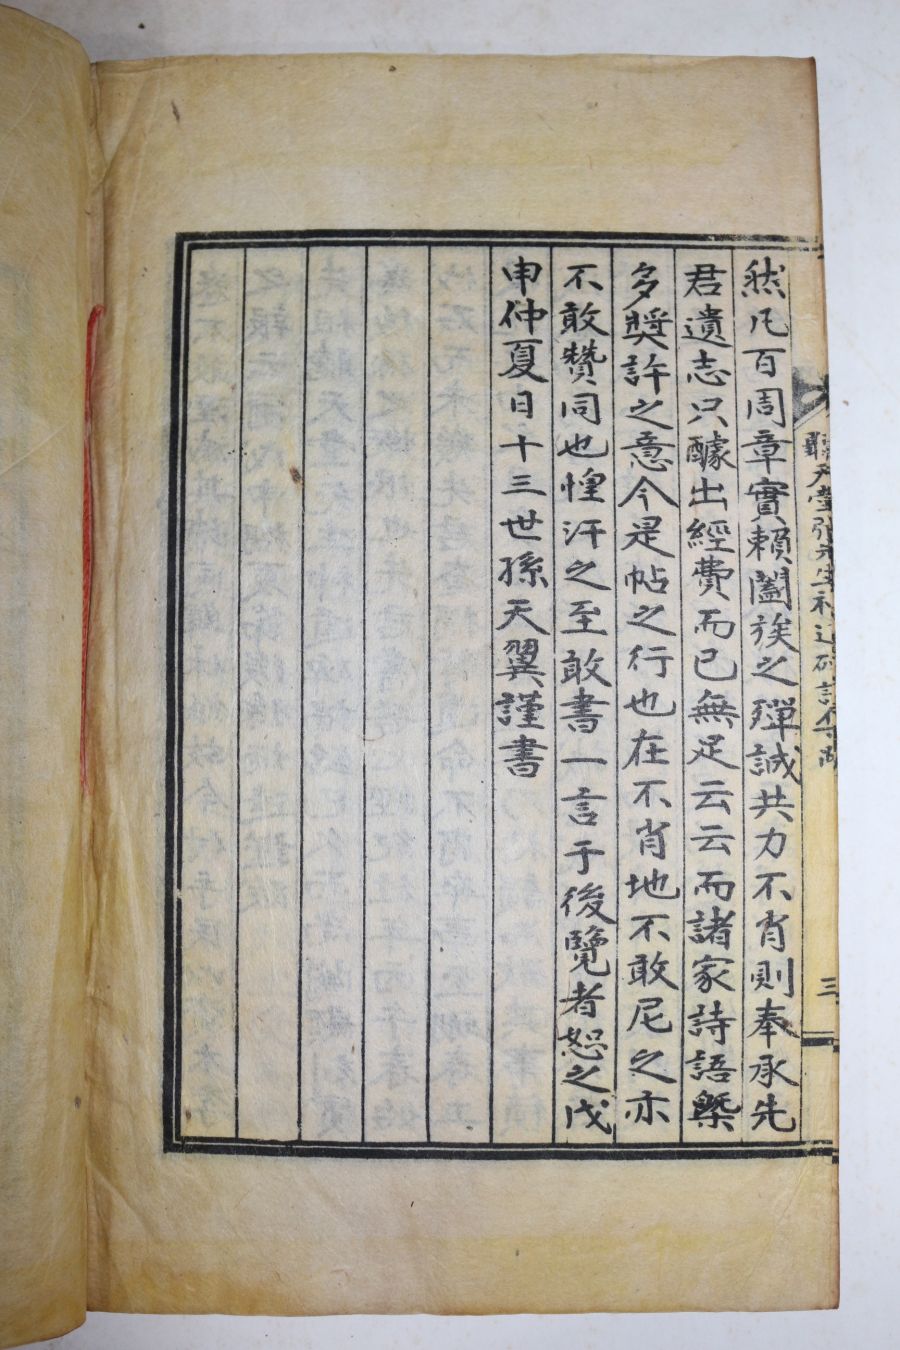 然凡百周章實賴闔族之殫誠共力不肖則奉承先
君遺志只醵出經費而已無足云云而諸家詩語槩
多獎許之意今是帖之行也在不肖地不敢尼之亦
不敢贊同也惶汗之至敢書一言于後覽者恕之戊
申仲夏日十三世孫天翼謹書
聽天堂張先生神道碑訟
三